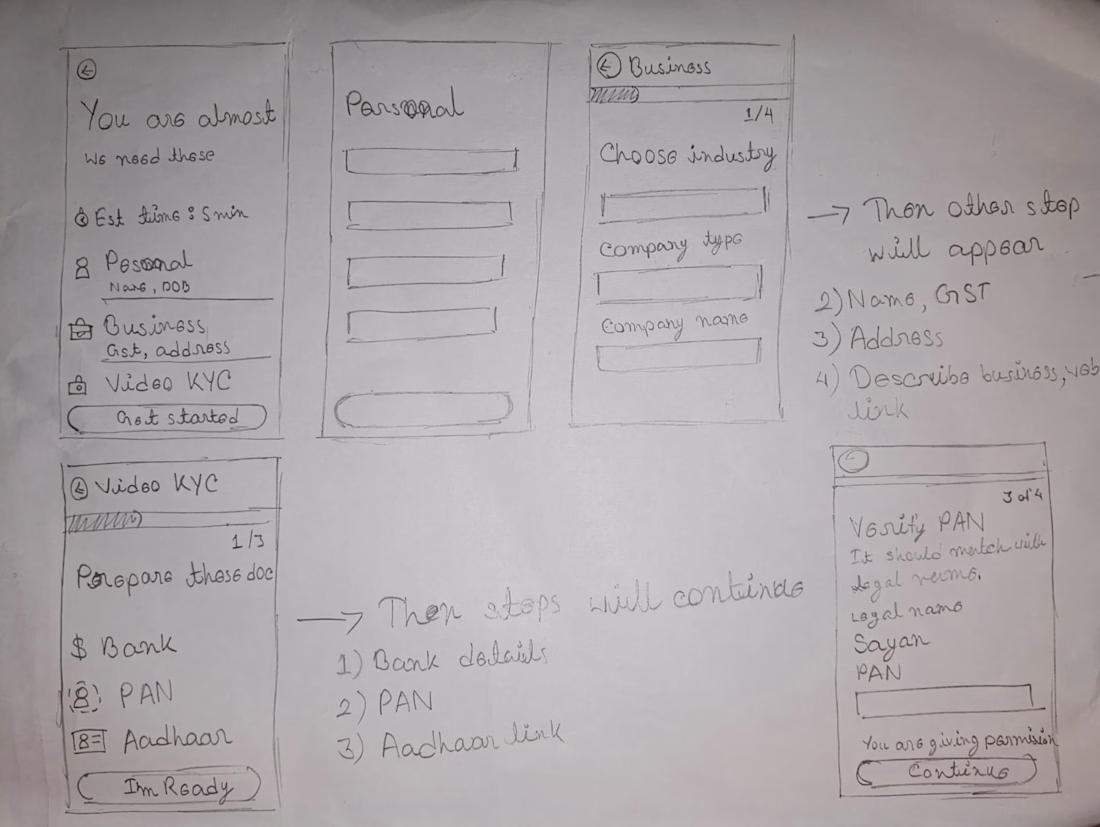 You are almost
We need these
Est time : 5 min
Pesonal
Name, DOB
Business
Gst, address
Video KYC
Get started
Personal
Business
1/4
Choose industry
Company type
Company name
→ Then other step
will appear
2) Name, GST
3) Address
4) Describe business, web
link
Video KYC
1/3
Prepare these doc
$ Bank
PAN
Aadhaar
I'm Ready
→ Then steps will continue
1) Bank details
2) PAN
3) Aadhaar link
3 of 4
Verify PAN
It should match with
legal name.
Legal name
Sayan
PAN
You are giving permision
Continue